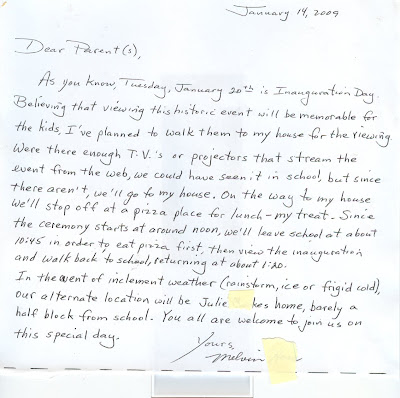 January 14, 2009
Dear Parent(s),
As you know, Tuesday, January 20th is Inauguration Day.
Believing that viewing this historic event will be memorable for
the kids, I've planned to walk them to my house for the viewing.
Were there enough T.V.'s or projectors that stream the
event from the web, we could have seen it in school, but since
there aren't, we'll go to my house. On the way to my house
we'll stop off at a pizza place for lunch - my treat. Since
the ceremony starts at around noon, we'll leave school at about
10:45 in order to eat pizza first, then view the inauguration
and walk back to school, returning at about 1:20.
In the event of inclement weather (rainstorm, ice or frigid cold)
our alternate location will be Julie kes home, barely a
half block from school. You all are welcome to join us on
this special day.
Yours,
Melvin